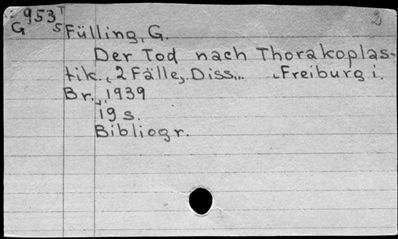 953 T
G S Fülling, G.
Der Tod nach Thorakoplas-
tik., 2 Fälle, Diss., Freiburg i.
Br., 1939
19 s.
Bibliogr.